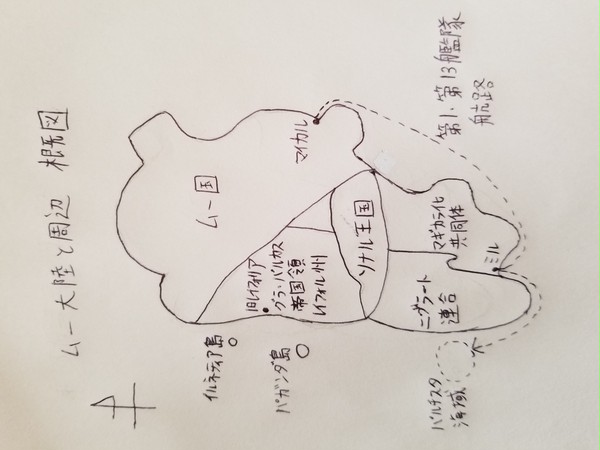 ムー大陸と周辺 概況図
第1、第13艦隊
航路
マイカル
ムー国
旧レイフォリア
グラ・バルカス
帝国領
レイフォル州
ソナル王国
マギカライヒ
共同体
ミル
ニグラート
連合
イルネティア島
パガンダ島
バルチスタ
海域